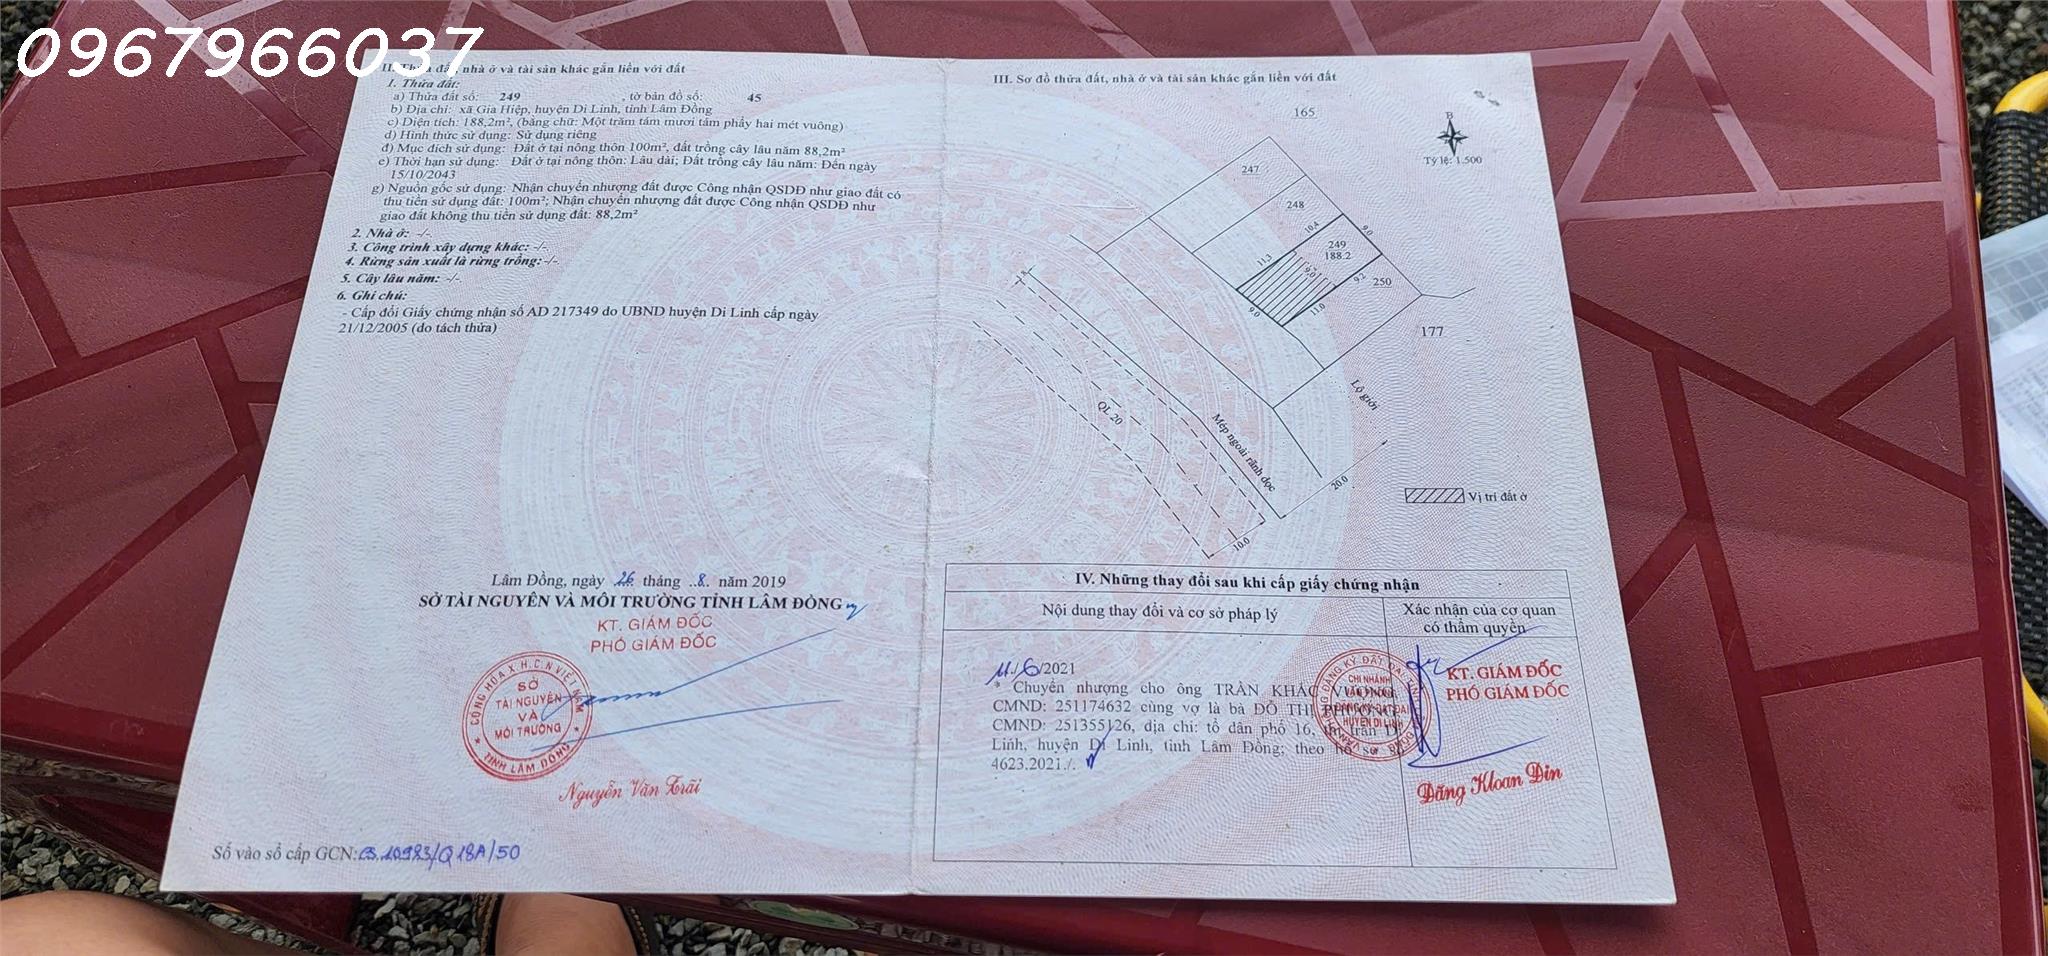 0967966037
II. Thửa đất, nhà ở và tài sản khác gắn liền với đất
1. Thửa đất:
a) Thửa đất số: 249 , tờ bản đồ số: 45
b) Địa chỉ: xã Gia Hiệp, huyện Di Linh, tỉnh Lâm Đồng
c) Diện tích: 188,2m², (bằng chữ: Một trăm tám mươi tám phẩy hai mét vuông)
d) Hình thức sử dụng: Sử dụng riêng
đ) Mục đích sử dụng: Đất ở tại nông thôn 100m², đất trồng cây lâu năm 88,2m²
e) Thời hạn sử dụng: Đất ở tại nông thôn: Lâu dài; Đất trồng cây lâu năm: Đến ngày
15/10/2043
g) Nguồn gốc sử dụng: Nhận chuyển nhượng đất được Công nhận QSDĐ như giao đất có
thu tiền sử dụng đất: 100m²; Nhận chuyển nhượng đất được Công nhận QSDĐ như
giao đất không thu tiền sử dụng đất: 88,2m²
2. Nhà ở: -/-.
3. Công trình xây dựng khác: -/-.
4. Rừng sản xuất là rừng trồng: -/-.
5. Cây lâu năm: -/-.
6. Ghi chú:
- Cấp đổi Giấy chứng nhận số AD 217349 do UBND huyện Di Linh cấp ngày
21/12/2005 (do tách thửa)
Lâm Đồng, ngày 26 tháng 8 năm 2019
SỞ TÀI NGUYÊN VÀ MÔI TRƯỜNG TỈNH LÂM ĐỒNG
KT. GIÁM ĐỐC
PHÓ GIÁM ĐỐC
CỘNG HÒA X.H.C.N VIỆT NAM
SỞ
TÀI NGUYÊN
VÀ
MÔI TRƯỜNG
TỈNH LÂM ĐỒNG
Nguyễn Văn Trãi
Số vào sổ cấp GCN:
III. Sơ đồ thửa đất, nhà ở và tài sản khác gắn liền với đất
165
B
Tỷ lệ: 1.500
247
248
10.4
9.0
249
188.2
11.3
9.0
9.2
250
9.0
11.0
177
Lộ giới
QL 20
Mép ngoài rãnh dọc
20.0
10.0
Vị trí đất ở
IV. Những thay đổi sau khi cấp giấy chứng nhận
Nội dung thay đổi và cơ sở pháp lý
Xác nhận của cơ quan
có thẩm quyền
11/6/2021
* Chuyển nhượng cho ông TRẦN KHẮC VƯƠNG
CMND: 251174632 cùng vợ là bà ĐỖ THỊ PHƯỢNG
CMND: 251355126, địa chỉ: tổ dân phố 16, thị trấn Di
Linh, huyện Di Linh, tỉnh Lâm Đồng; theo hồ sơ số
4623.2021./.
CHI NHÁNH
VĂN PHÒNG
ĐĂNG KÝ ĐẤT ĐAI
HUYỆN DI LINH
KT. GIÁM ĐỐC
PHÓ GIÁM ĐỐC
Đăng Kloan Din